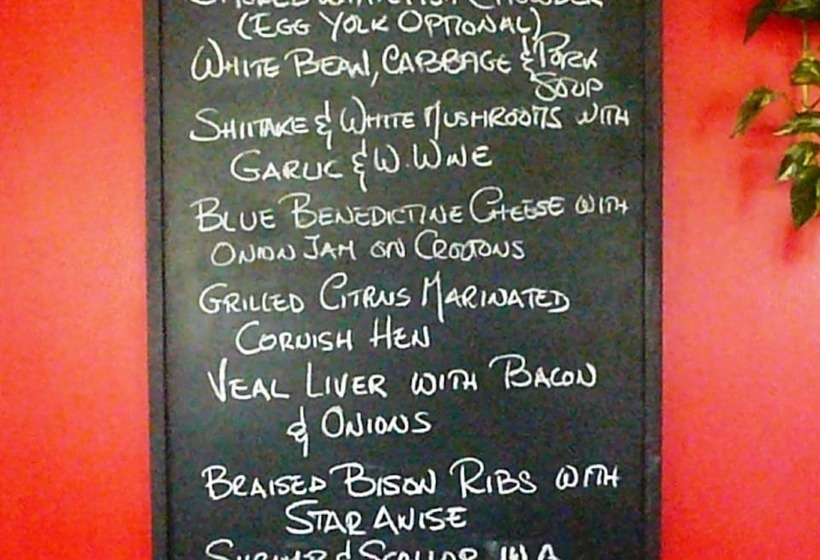 Smoked Whitefish Chowder
(Egg Yolk Optional)
White Bean, Cabbage & Pork
Soup
Shiitake & White Mushrooms with
Garlic & W. Wine
Blue Benedictine Cheese with
Onion Jam on Croutons
Grilled Citrus Marinated
Cornish Hen
Veal Liver with Bacon
& Onions
Braised Bison Ribs with
Star Anise
Shrimp & Scallop in a